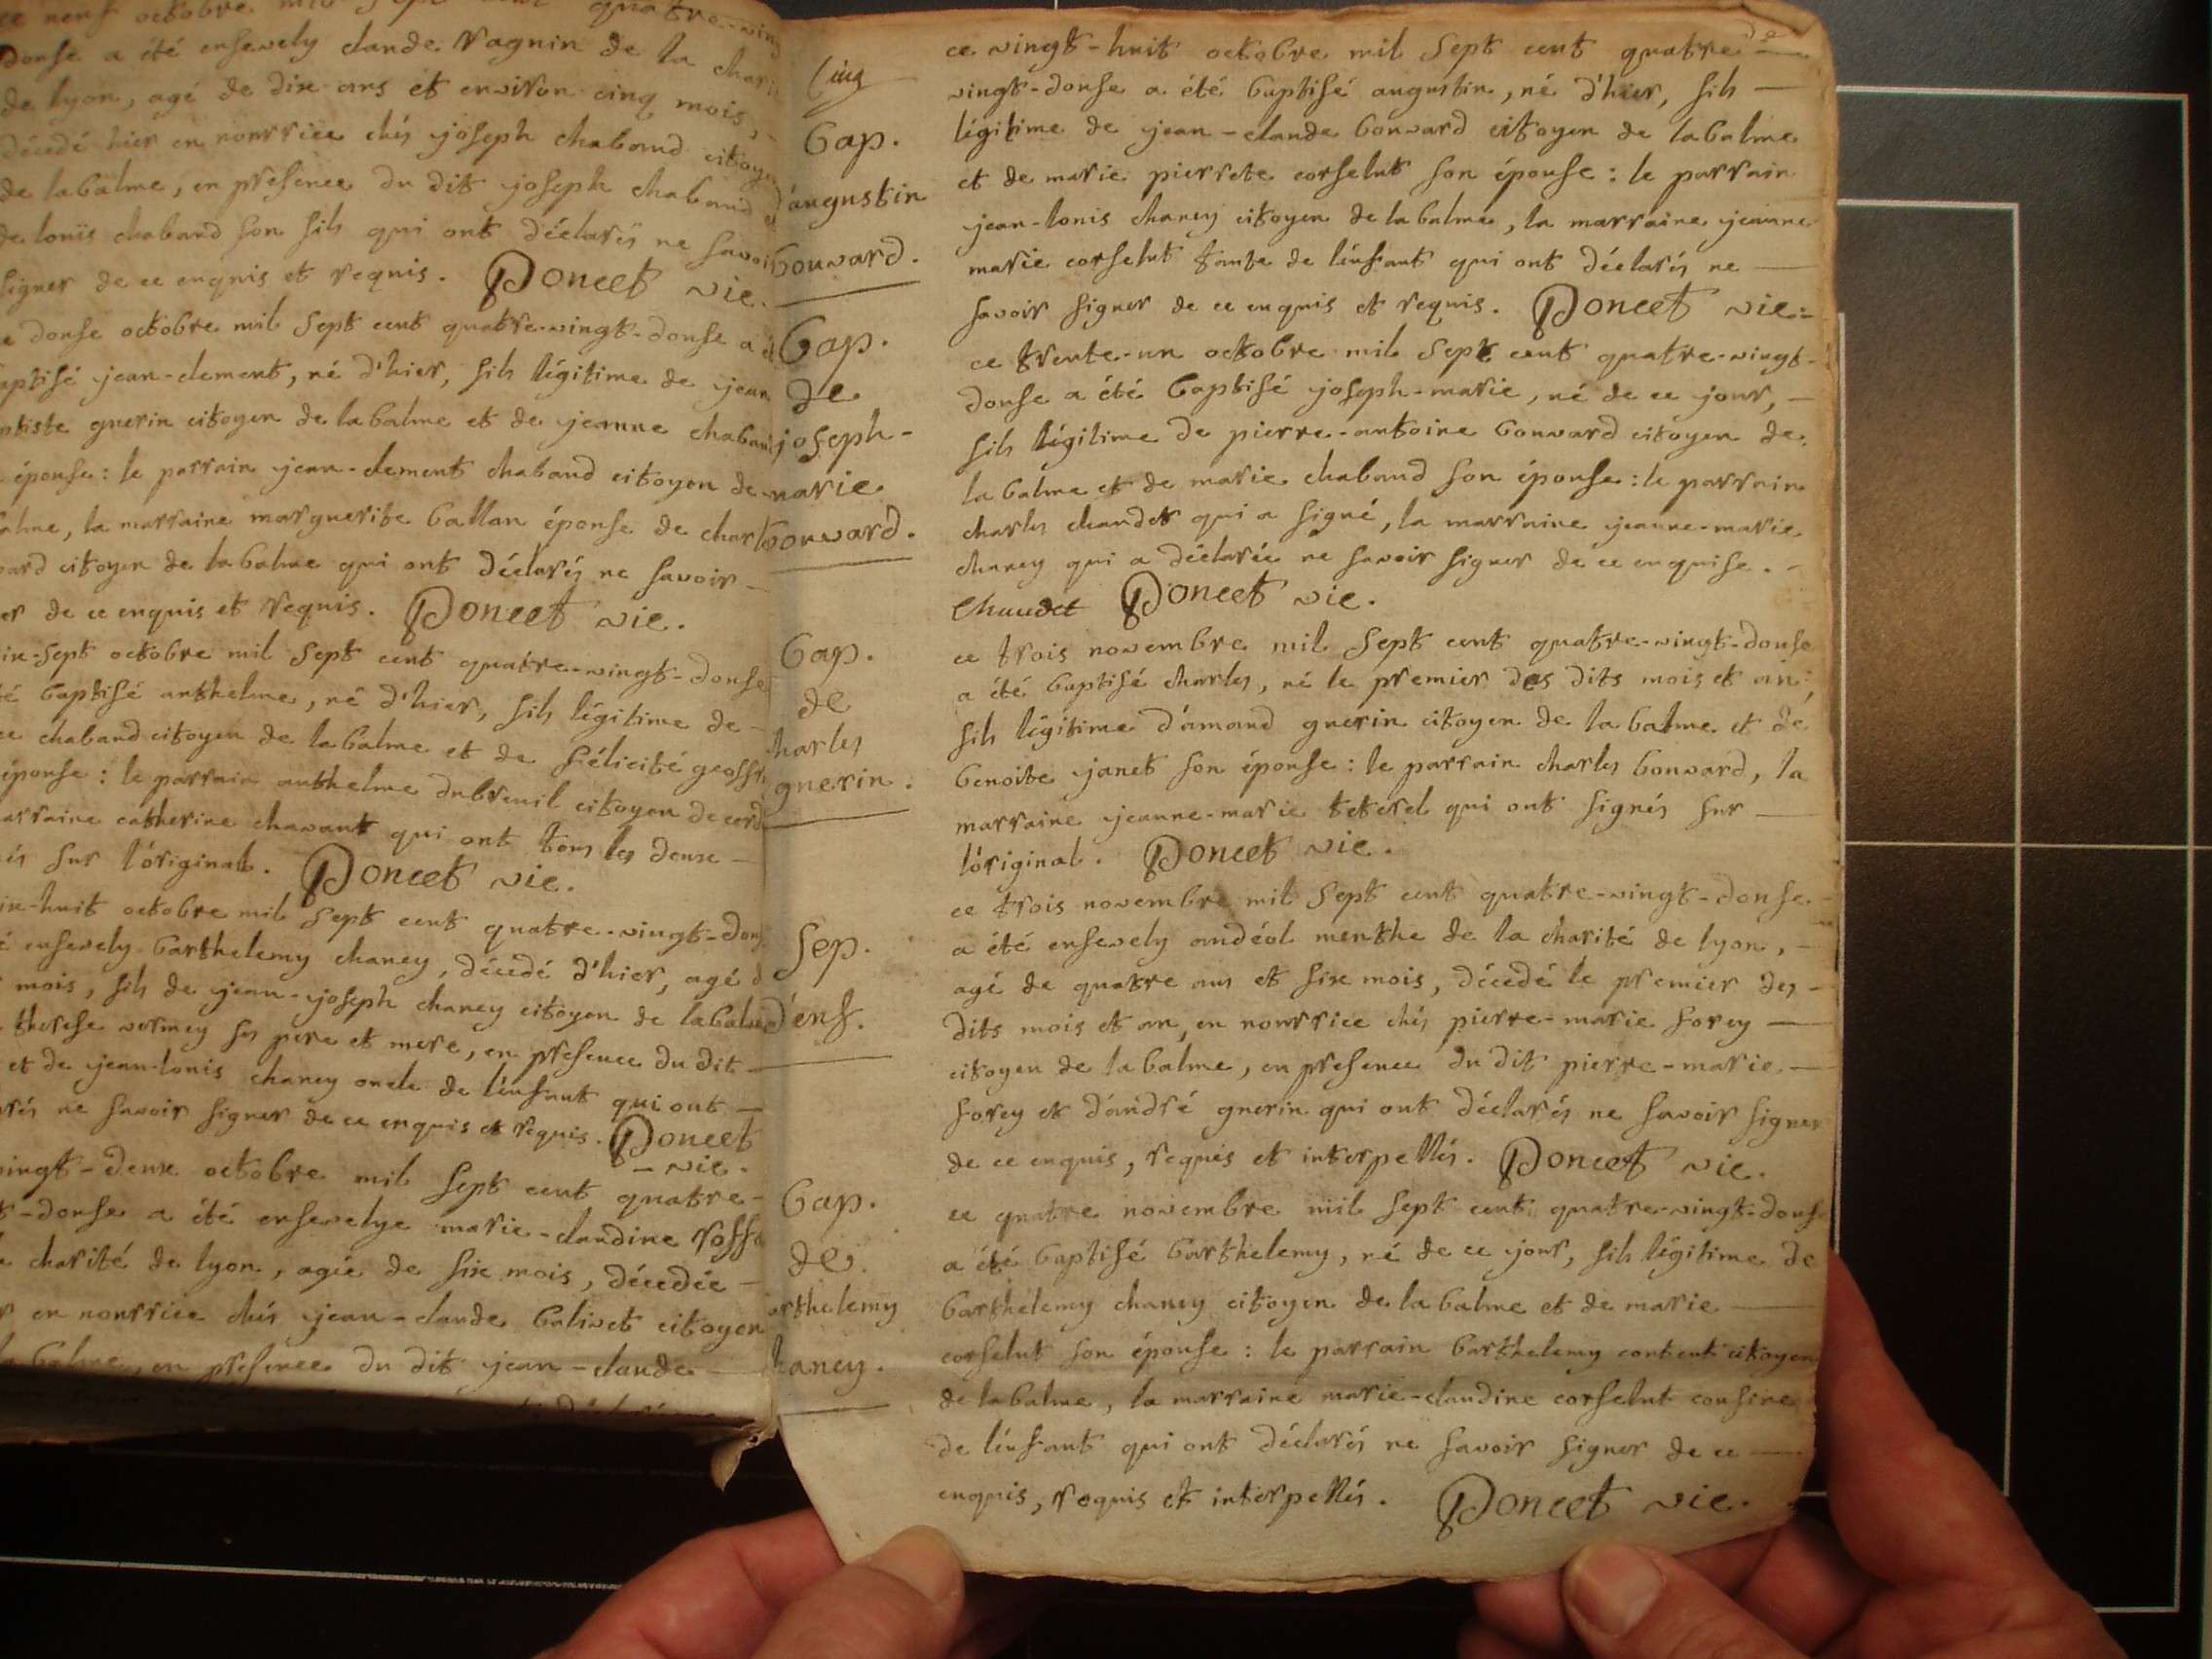 ce neuf octobre mil sept cent quatre-ving
donse a été ensevely claude vagnin de la chari
de lyon, agé de dix ans et environ cinq mois,
décedé hier en nourrice chés joseph chaband citoyen
de labalme, en presence du dit joseph chaband et
de loüis chaband son fils qui ont déclarés ne savoir
signer de ce enquis et requis. Poncet vic.
e donse octobre mil sept cent quatre-vingt-donse a é
aptisé jean-clement, né d'hier, fils légitime de jean
ptiste guerin citoyen de labalme et de jeanne chaban
épouse: le parrain jean-clement chaband citoyen de
alme, la marraine marguerite ballan épouse de charles
vard citoyen de labalme qui ont déclarés ne savoir
er de ce enquis et requis. Poncet vic.
ix-sept octobre mil sept cent quatre-vingt-donse
té baptisé anthelme, né d'hier, fils légitime de
ce chaband citoyen de labalme et de félicité geoff
épouse: le parrain anthelme dubreuil citoyen de cord
arraine catherine chavant qui ont tous les deux
és sur l'original. Poncet vic.
ix-huit octobre mil sept cent quatre-vingt-dons
é ensevely barthelemy chaney, décedé d'hier, agé d
mois, fils de jean-joseph chaney citoyen de labalme
therese vermey ses pere et mere, en presence du dit
et de jean-louis chaney oncle de l'enfant qui ont
arés ne savoir signer de ce enquis et requis. Poncet
vic.
vingt-deux octobre mil sept cent quatre-
t-donse a été ensevelye marie-claudine ross
a charité de lyon, agée de six mois, décedée
r en nourrice chés jean-claude balivet citoyen
la balme, en presence du dit jean-claude
cinq
bap.
d'augustin
bonvard.
ce vingt-huit octobre mil sept cent quatre
vingt-donse a été baptisé augustin, né d'hier, fils
légitime de jean-claude bonvard citoyen de labalme
et de marie pierrete corselut son épouse: le parrain
jean-louis chaney citoyen de labalme, la marraine jeanne
marie corselut tante de l'enfant qui ont déclarés ne
savoir signer de ce enquis et requis. Poncet vic.
bap.
de
joseph-
marie
bonvard.
ce trente-un octobre mil sept cent quatre-vingt-
donse a été baptisé joseph-marie, né de ce jour,
fils légitime de pierre-antoine bonvard citoyen de
la balme et de marie chaband son épouse: le parrain
charles chaudet qui a signé, la marraine jeanne-marie
chaney qui a déclarée ne savoir signer de ce enquise.
Chaudet Poncet vic.
bap.
de
charles
guerin.
ce trois novembre mil sept cent quatre-vingt-donse
a été baptisé charles, né le premier des dits mois et an,
fils légitime d'amand guerin citoyen de la balme et de
benoite janet son épouse: le parrain charles bonvard, la
marraine jeanne-marie teterel qui ont signés sur
l'original. Poncet vic.
sep.
d'enf.
ce trois novembre mil sept cent quatre-vingt-donse
a été ensevely andéol menthe de la charité de lyon,
agé de quatre ans et six mois, décedé le premier des
dits mois et an, en nourrice chés pierre-marie forey
citoyen de la balme, en presence du dit pierre-marie
forey et d'andré guerin qui ont déclarés ne savoir signer
de ce enquis, requis et interpellés. Poncet vic.
bap.
de
barthelemy
chaney.
ce quatre novembre mil sept cent quatre-vingt-donse
a été baptisé barthelemy, né de ce jour, fils légitime de
barthelemy chaney citoyen de labalme et de marie
corselut son épouse: le parrain barthelemy content citoyen
de labalme, la marraine marie-claudine corselut cousine
de l'enfant qui ont déclarés ne savoir signer de ce
enquis, requis et interpellés. Poncet vic.